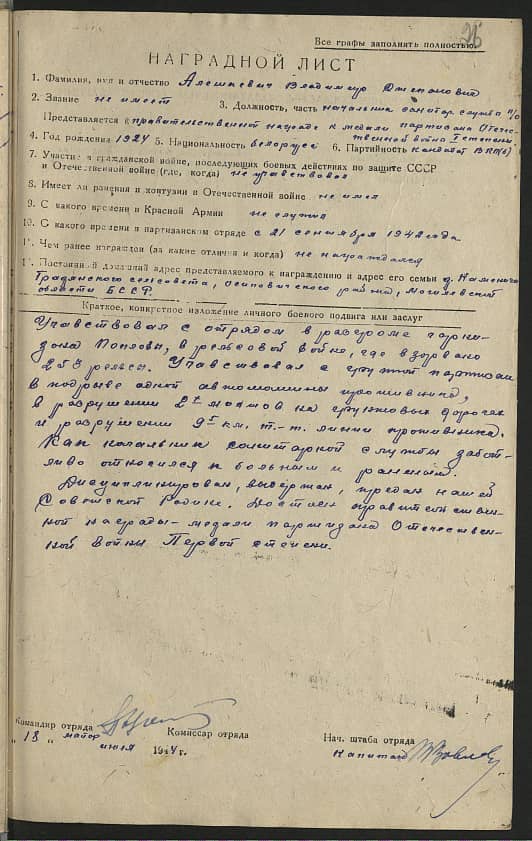 26
Все графы заполнять полностью.
НАГРАДНОЙ ЛИСТ
1. Фамилия, имя и отчество Алешкевич Владимир
2. Звание не имеет 3. Должность, часть начальник санитар. служба п/о
Представляется к правительственной награде к медали партизана Отече-
ственной войны I степени.
4. Год рождения 1924 5. Национальность белорус 6. Партийность кандидат ВКП(б)
7. Участие в гражданской войне, последующих боевых действиях по защите СССР
и Отечественной войне (где, когда) не участвовал
8. Имеет ли ранения и контузии в Отечественной войне не имел
9. С какого времени в Красной Армии не служил
10. С какого времени в партизанском отряде с 21 сентября 1942 года
11. Чем ранее награжден (за какие отличия и когда) не награждался
12. Постоянный домашний адрес представляемого к награждению и адрес его семьи д. Каменичи
Градянского сельсовета, Осиповичского района, Могилевской
области БССР.
Краткое, конкретное изложение личного боевого подвига или заслуг
Участвовал с отрядом в разгроме гарни-
зона в рельсовой войне, где взорвано
рельсы. Участвовал с группой партизан
в подрыве одной автомашины противника,
в разрушении 2х мостов на грунтовых дорогах
и разрушении 9ти км. т.-т. линии противника.
Как начальник санитарной службы забот-
ливо относился к больным и раненым.
Дисциплинирован, выдержан, предан нашей
Советской Родине. Достоин правительствен-
ной награды - медали партизана Отечествен-
ной войны Первой степени.
Командир отряда Комиссар отряда Нач. штаба отряда
майор капитан
„18„ июля 1944 г.